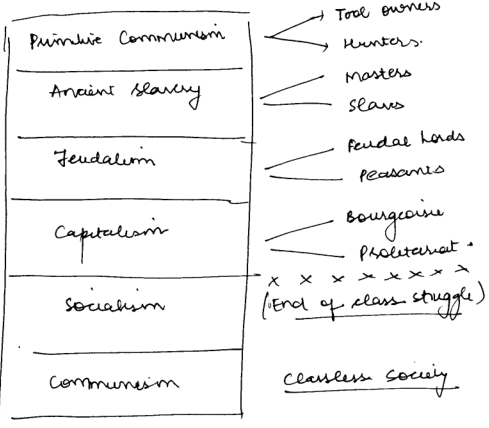 Primitive Communism
Tool owners
Hunters.
Ancient Slavery
Masters
Slaves
Feudalism
Feudal Lords
Peasants
Capitalism
Bourgeoisie
Proletariat.
x x x x x x x x
Socialism
(End of class struggle)
Communism
Classless Society